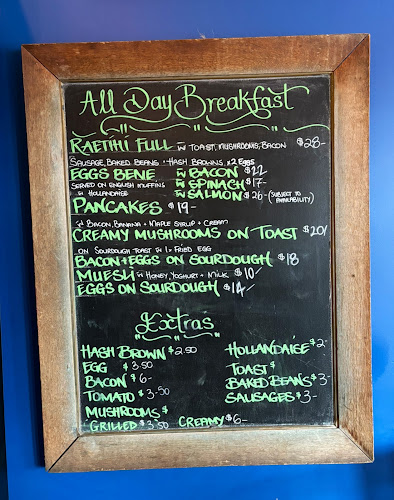 All Day Breakfast
RAETIHI FULL w TOAST, MUSHROOMS, BACON $28-
SAUSAGE, BAKED BEANS + HASH BROWNS, x2 EGGS
EGGS BENE w BACON $22
SERVED ON ENGLISH MUFFINS w SPINACH $17-
w HOLLANDAISE w SALMON $26- (SUBJECT TO AVAILABILITY)
PANCAKES $19-
w BACON, BANANA + MAPLE SYRUP + CREAM
CREAMY MUSHROOMS ON TOAST $20/
ON SOURDOUGH TOAST w 1x FRIED EGG
BACON+EGGS ON SOURDOUGH $18
MUESLI w HONEY, YOGHURT + MILK $10/
EGGS ON SOURDOUGH $14/
Extras
HASH BROWN $2.50
EGG $3.50
BACON $6-
TOMATO $3-50
MUSHROOMS $
GRILLED $3.50 CREAMY $6-
HOLLANDAISE $2-
TOAST $
BAKED BEANS $3-
SAUSAGES $3-